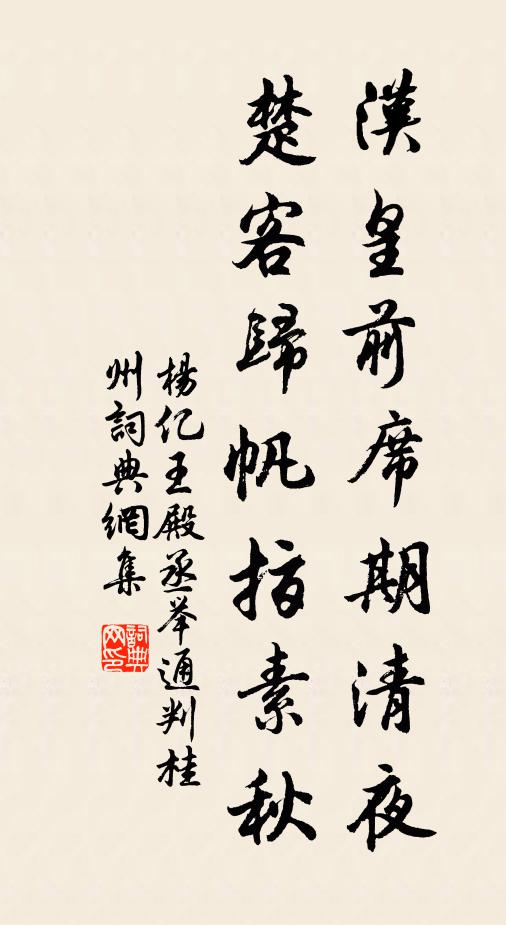 漢皇前席期清夜
楚客歸帆指素秋
楊亿王殿丞举通判桂
州詞典網集
詞典网印